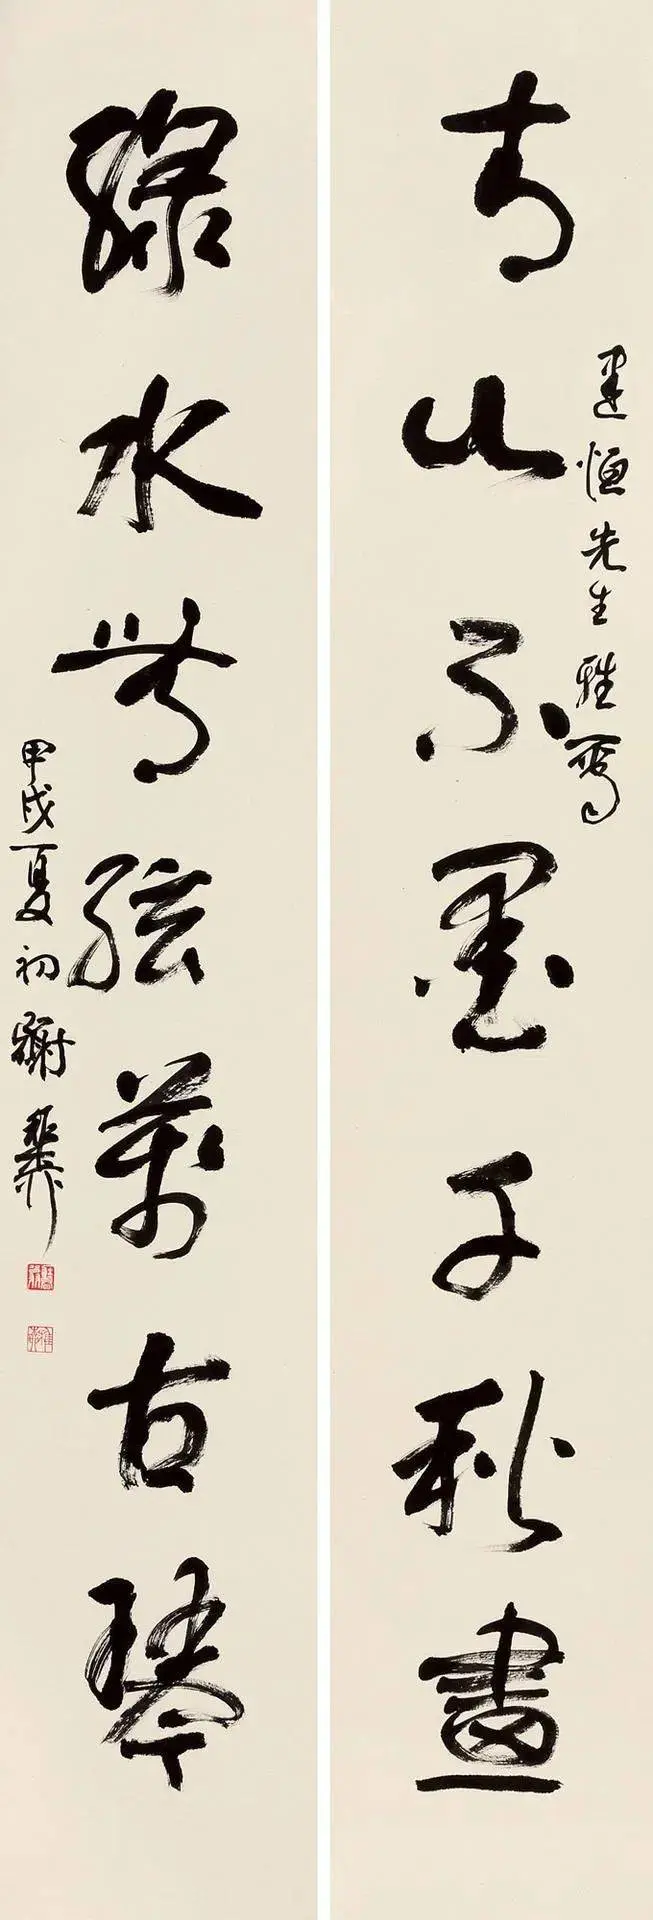 青山不墨千秋畫
建恒先生雅屬
綠水無絃萬古琴
甲戌夏初